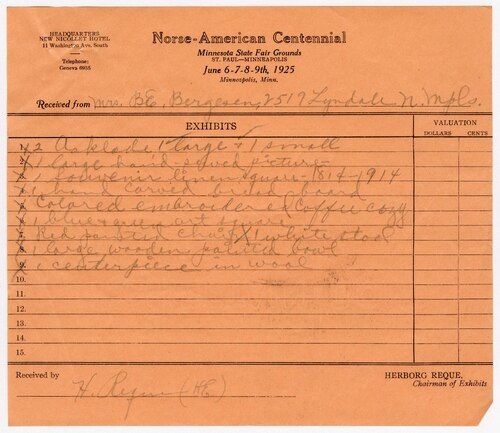 HEADQUARTERS
NEW NICOLLET HOTEL
11 Washington Ave. South
Telephone:
Geneva 6935
Norse-American Centennial
Minnesota State Fair Grounds
ST. PAUL—MINNEAPOLIS
June 6-7-8-9th, 1925
Minneapolis, Minn.
Received from Mrs. B.E. Bergesen, 2519 Lyndale N. Mpls.
EXHIBITS
VALUATION
DOLLARS CENTS
2 Asklade 1 large & 1 small
1 large hand-sewed picture
1 souvenir linen square - 1814-1914
1 hand carved bread board
Colored embroidered Coffee cozy
1 blue & green art square
Red painted chair X 1 white stool
1 large wooden painted bowl
1 centerpiece in wool
10.
11.
12.
13.
14.
15.
Received by H. Reque (HE)
HERBORG REQUE,
Chairman of Exhibits